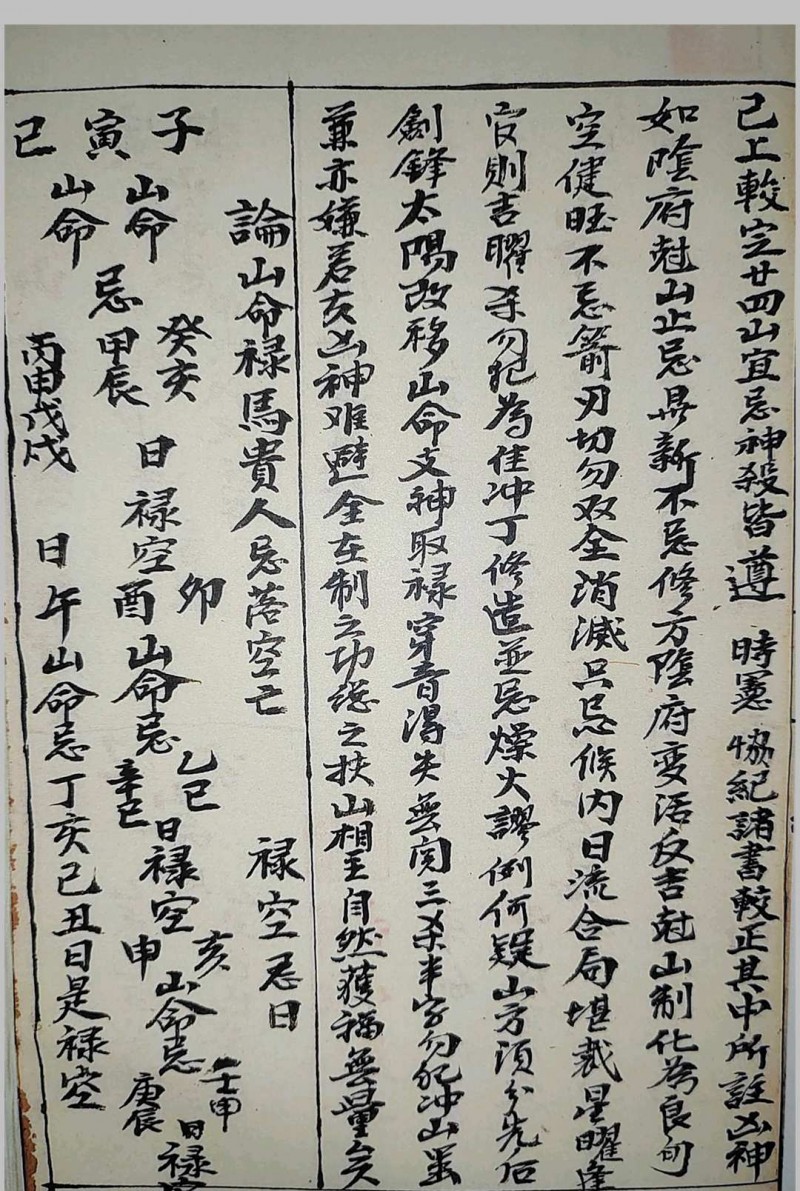 已上較定廿四山宜忌神殺皆遵 時憲協紀諸書較正其中所註凶神
如陰府尅山止忌鼎新不忌修方陰府变活反吉尅山制化為良旬
空健旺不忌箭刃切勿双全消滅只忌候内日流合局堪裁星曜逢
官則吉曜杀勿犯為佳冲丁修造並忌燥火謬例何疑山方須分先后
劍鋒太陽改移山命支神取禄穿音得失無関三杀半字勿犯冲山虽
兼亦嫌若亥凶神难避全在制之功総之扶山相主自然獲福無量矣
論山命禄馬貴人忌落空亡 禄空忌日
子寅山命忌癸亥甲辰日禄空卯酉山命忌乙巳辛巳日禄空亥申山命忌壬申庚辰日禄空
巳山命丙申戊戌日午山命忌丁亥己丑日是禄空